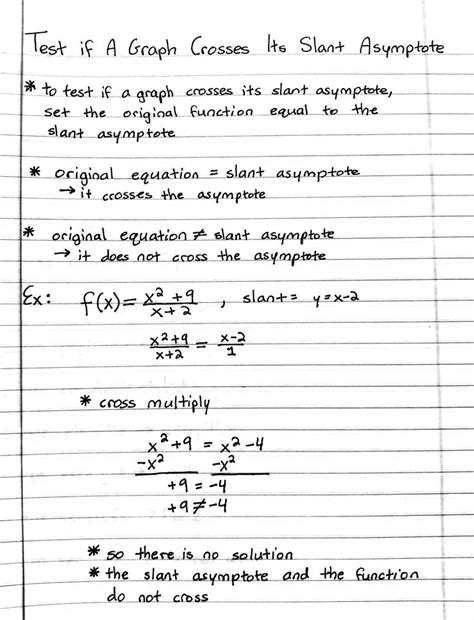 Test if A Graph Crosses Its Slant Asymptote
* to test if a graph crosses its slant asymptote,
set the original function equal to the
slant asymptote
* original equation = slant asymptote
→ it crosses the asymptote
* original equation ≠ slant asymptote
→ it does not cross the asymptote
Ex: f(x) = (x² + 9)/(x + 2) , slant = y = x-2
(x² + 9)/(x + 2) = (x-2)/1
* cross multiply
x² + 9 = x² - 4
-x² -x²
+9 = -4
+9 ≠ -4
* so there is no solution
* the slant asymptote and the function
do not cross